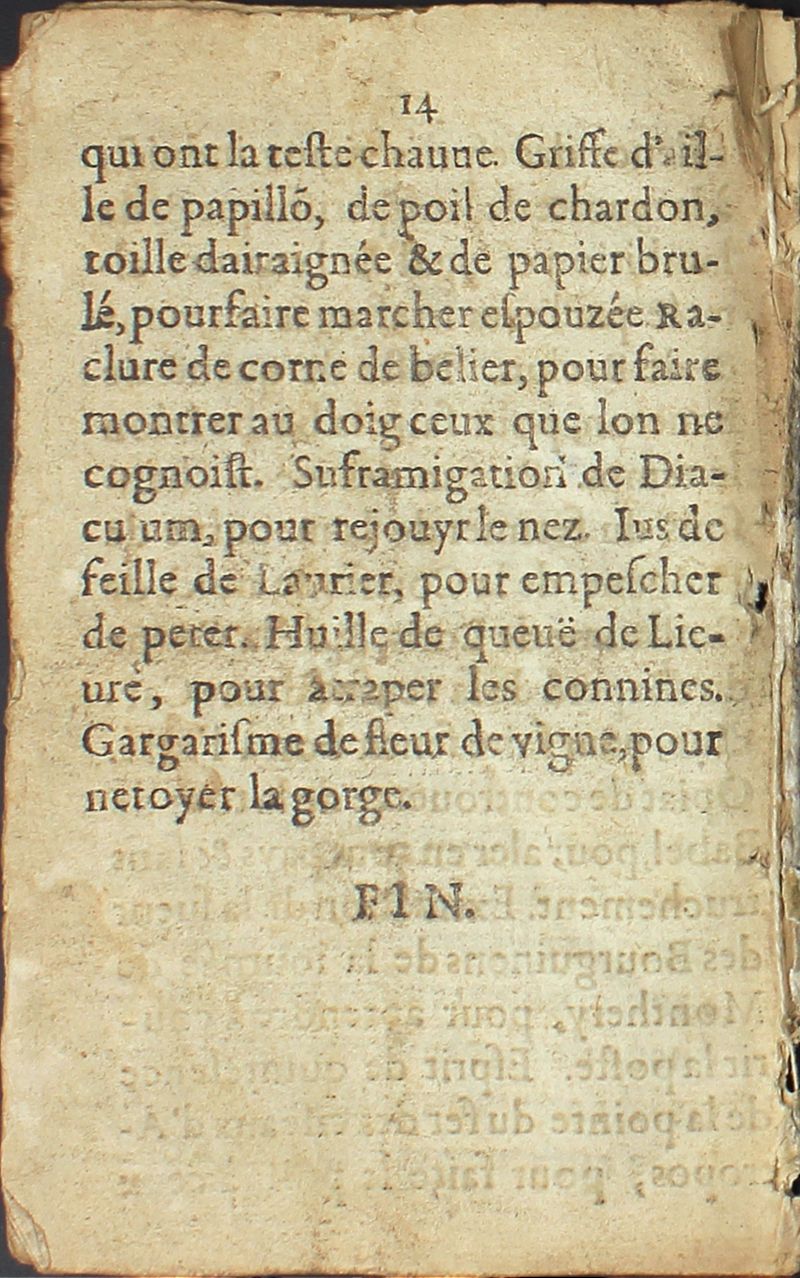 14
qui ont la teſte chauue. Griffe d'
le de papillõ, de poil de chardon,
toille dairaignée & de papier bru-
lé, pour faire marcher eſpouzée Ra-
clure de corne de belier, pour faire
montrer au doig ceux que lon ne
cognoiſt. Suframigation de Dia-
cu um, pour rejouyr le nez. Ius de
feille de Laurier, pour empeſcher
de peter. Huille de queuë de Lie-
ure, pour atraper les connines.
Gargariſme de fleur de vigne, pour
netoyer la gorge.
FIN.